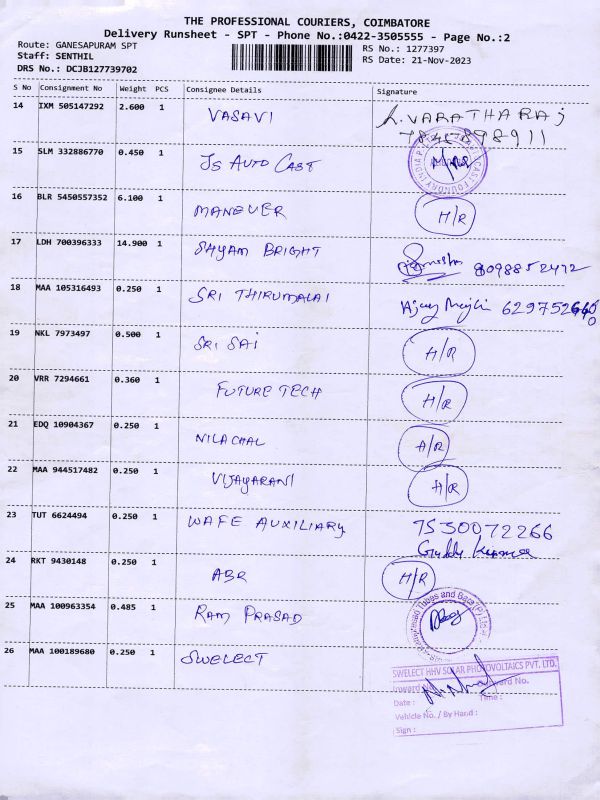 THE PROFESSIONAL COURIERS, COIMBATORE
Delivery Runsheet - SPT - Phone No.:0422-3505555 - Page No.:2
Route: GANESAPURAM SPT RS No.: 1277397
Staff: SENTHIL RS Date: 21-Nov-2023
DRS No.: DCJB127739702
S No Consignment No Weight PCS Consignee Details Signature
14 IXM 505147292 2.600 1 VASAVI R. VARATHARAJ
7845898911
15 SLM 332886770 0.450 1 JS AUTO CAST
16 BLR 5450557352 6.100 1 MANEUER H/R
17 LDH 700396333 14.900 1 SHYAM BRIGHT 8098852472
18 MAA 105316493 0.250 1 SRI THIRUMALAI
19 NKL 7973497 0.500 1 SRI SAI H/R
20 VRR 7294661 0.360 1 FUTURE TECH H/R
21 EDQ 10904367 0.250 1 NILACHAL A/R
22 MAA 944517482 0.250 1 VIJAYARANI A/R
23 TUT 6624494 0.250 1 WAFE AUXILIARY 7530072266
24 RKT 9430148 0.250 1 ABR H/R
25 MAA 100963354 0.485 1 RAM PRASAD
Tubes and Bars (P) Ltd
26 MAA 100189680 0.250 1 SWELECT
SWELECT HHV SOLAR PHOTOVOLTAICS PVT. LTD.
Inward No.
Date : Time :
Vehicle No. / By Hand :
Sign :